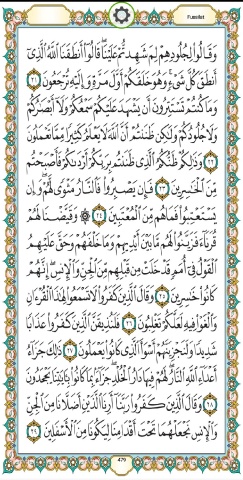 Fussilet
وَقَالُوا لِجُلُودِهِمْ لِمَ شَهِدتُّمْ عَلَيْنَا قَالُوا أَنطَقَنَا اللَّهُ الَّذِي
أَنطَقَ كُلَّ شَيْءٍ وَهُوَ خَلَقَكُمْ أَوَّلَ مَرَّةٍ وَإِلَيْهِ تُرْجَعُونَ ٢١
وَمَا كُنتُمْ تَسْتَتِرُونَ أَن يَشْهَدَ عَلَيْكُمْ سَمْعُكُمْ وَلَا أَبْصَارُكُمْ
وَلَا جُلُودُكُمْ وَلَٰكِن ظَنَنتُمْ أَنَّ اللَّهَ لَا يَعْلَمُ كَثِيرًا مِّمَّا تَعْمَلُونَ
٢٢ وَذَٰلِكُمْ ظَنُّكُمُ الَّذِي ظَنَنتُم بِرَبِّكُمْ أَرْدَاكُمْ فَأَصْبَحْتُم
مِّنَ الْخَاسِرِينَ ٢٣ فَإِن يَصْبِرُوا فَالنَّارُ مَثْوًى لَّهُمْ وَإِن
يَسْتَعْتِبُوا فَمَا هُم مِّنَ الْمُعْتَبِينَ ٢٤ ۞ وَقَيَّضْنَا لَهُمْ
قُرَنَاءَ فَزَيَّنُوا لَهُم مَّا بَيْنَ أَيْدِيهِمْ وَمَا خَلْفَهُمْ وَحَقَّ عَلَيْهِمُ
الْقَوْلُ فِي أُمَمٍ قَدْ خَلَتْ مِن قَبْلِهِم مِّنَ الْجِنِّ وَالْإِنسِ إِنَّهُمْ
كَانُوا خَاسِرِينَ ٢٥ وَقَالَ الَّذِينَ كَفَرُوا لَا تَسْمَعُوا لِهَٰذَا الْقُرْآنِ
وَالْغَوْا فِيهِ لَعَلَّكُمْ تَغْلِبُونَ ٢٦ فَلَنُذِيقَنَّ الَّذِينَ كَفَرُوا عَذَابًا
شَدِيدًا وَلَنَجْزِيَنَّهُمْ أَسْوَأَ الَّذِي كَانُوا يَعْمَلُونَ ٢٧ ذَٰلِكَ جَزَاءُ
أَعْدَاءِ اللَّهِ النَّارُ لَهُمْ فِيهَا دَارُ الْخُلْدِ جَزَاءً بِمَا كَانُوا بِآيَاتِنَا يَجْحَدُونَ
٢٨ وَقَالَ الَّذِينَ كَفَرُوا رَبَّنَا أَرِنَا الَّذَيْنِ أَضَلَّانَا مِنَ الْجِنِّ
وَالْإِنسِ نَجْعَلْهُمَا تَحْتَ أَقْدَامِنَا لِيَكُونَا مِنَ الْأَسْفَلِينَ ٢٩
479